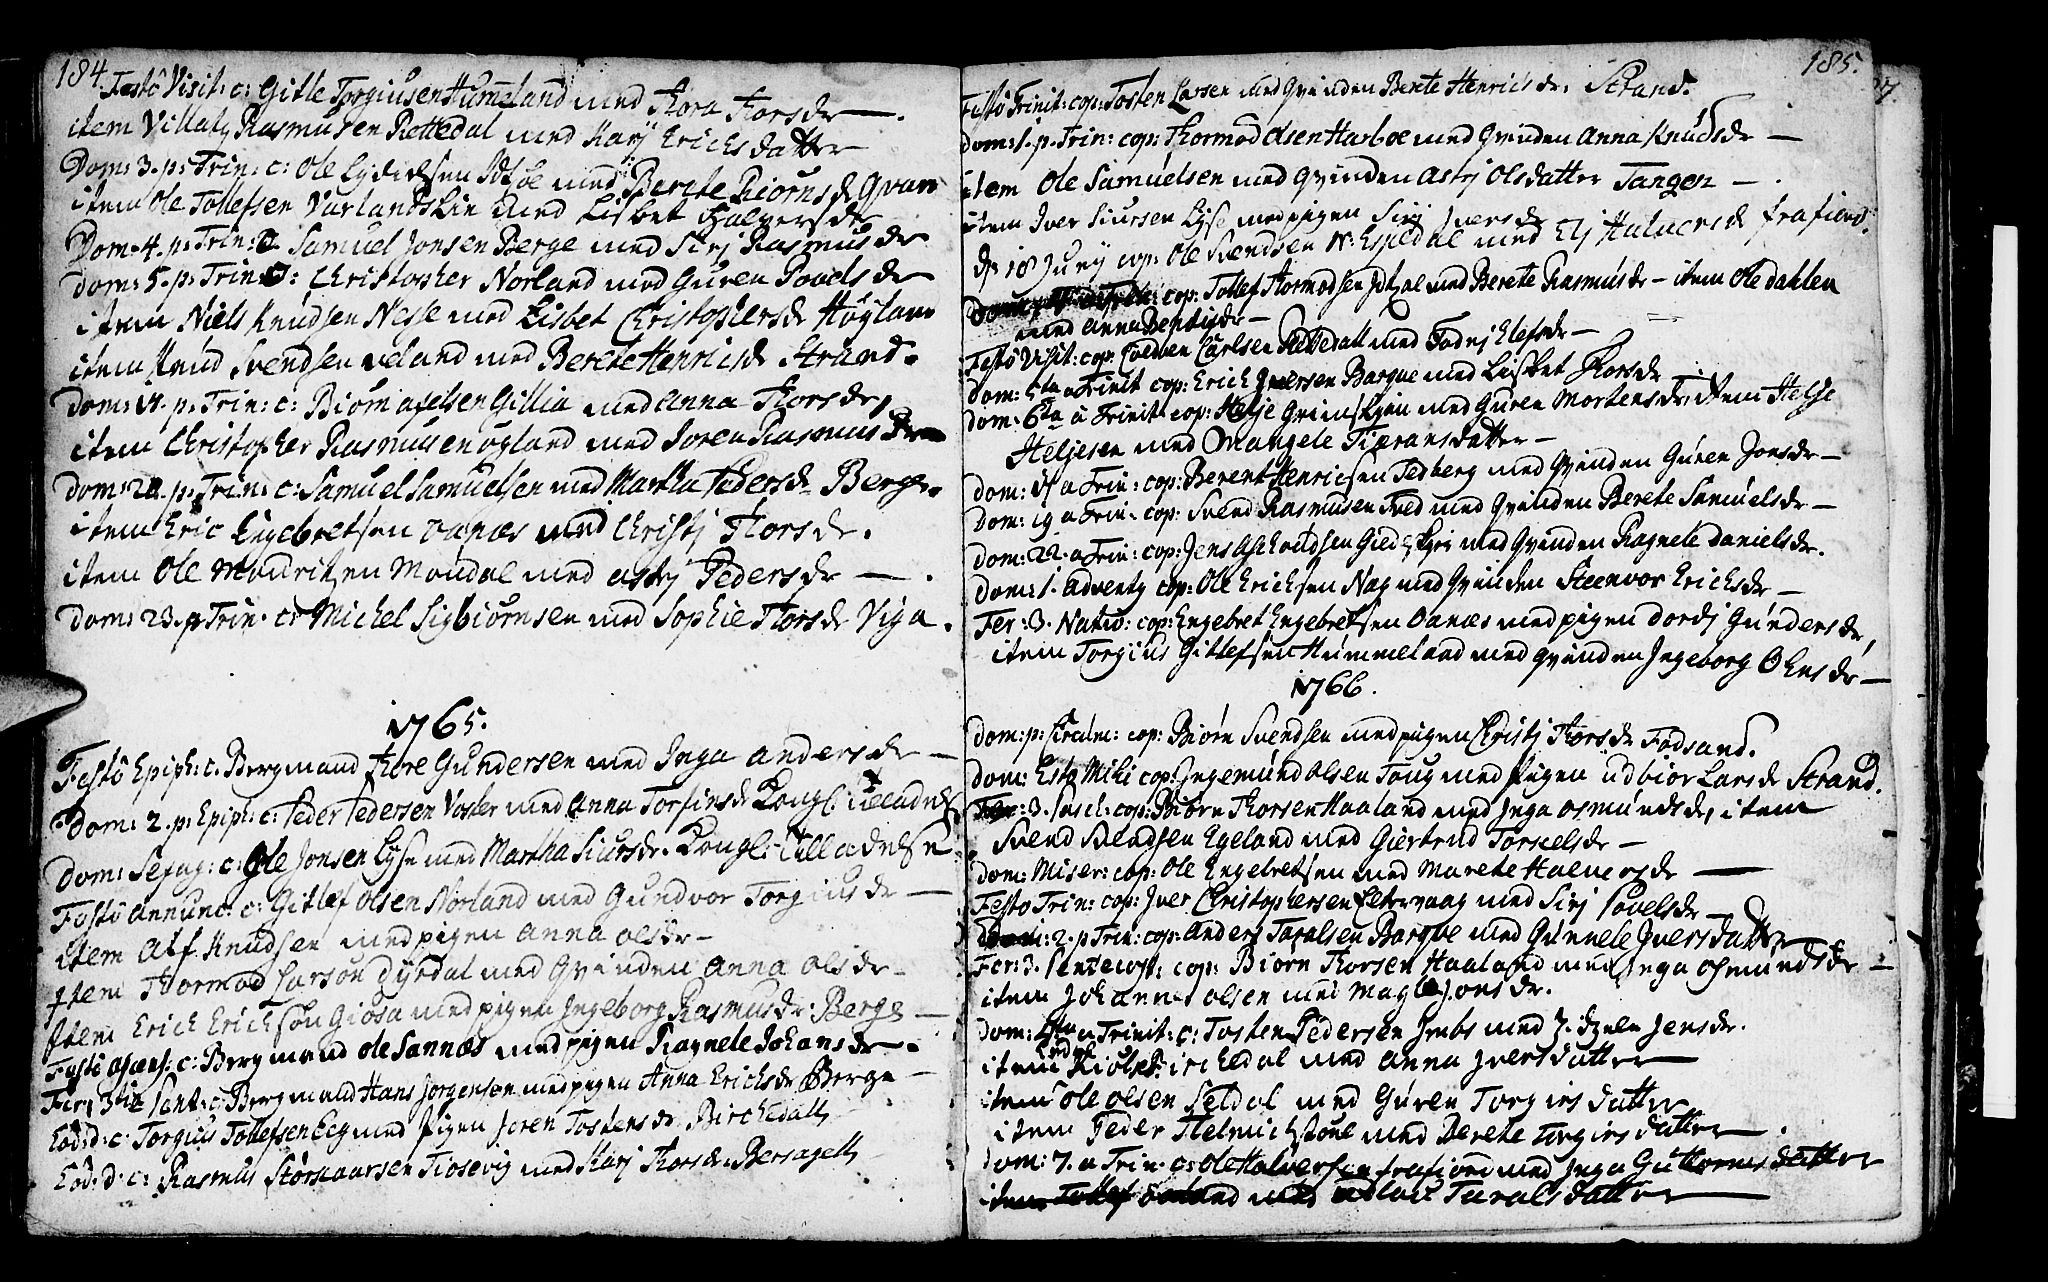 184.
Festo Visit: c: Gitle Torgiusen Hummeland med Thora Thorsdr —.
item Villatz Rasmusen Rettedal med Karj Erichsdatter
Dom: 3. p: Trin: c: Ole Lydichsen Idsøe med Berete Biørnsdr
item Ole Tollefsen Varlandslie med Lisbet Halversdr
Dom: 4. p: Trin: c: Samuel Jonsen Berge med Sirj Rasmusdr
Dom: 5. p: Trin: c: Christopher Norland med Guren Povelsdr
item Niels Knudsen Nesse med Lisbet Christophersdr Høyland
item Knud Svendsen Veland med Berete Henricsdr Strand.
Dom: p: Trin: c: Biørn Axelsen Gillia med Anna Thorsdr,
item Christopher Rasmusen Øgland med Joren Rasmusdr
Dom: p: Trin: c: Samuel Samuelsen med Martha Pedersdr Berge.
item Eric Engebretsen Oanæs med Christj Thorsdr.
item Ole Mondrikzen Mondal med Astrj Pedersdr —.
Dom: 23. p Trin: c: Michel Sigbiørnsen med Sophie Thorsdr Viga.
1765.
Festo Epiph: c. Bergmand Thore Gundersen med Inga Andersdr —
Dom: 2. p: Epiph: c: Peder Pedersen Vosler med Anna Torfinsdr Kongl: Tilladelse
Dom: Sexag: c: Ole Jonsen Lyse med Martha Siursdr. Kongl: Tilladelse
Festo Annunc: c: Gitlef Olsen Norland med Gundvor Torgiusdr —
item Alf Knudsen med pigen Anna Olsdr —
Item Thormod Larsøn Dyrdal med Qvinden Anna Olsdr —
Item Erich Erichsøn Giøsa med pigen Ingeborg Rasmusdr: Berge —
Festo Ascens: c: Bergmand Ole Sannæs med pigen Ragnele Johansdr —.
Fer: 3tie Pent: c: Bergmand Hans Jørgensøn med pigen Anna Erichsdr Berge —
Eod: d: c: Torgius Tollefsen Eeg med Pigen Joren Tostensdr Birchedall
Eod: d: c: Rasmus Storkaarsen Tiosevig med Karj Thorsdr Bersagell
185.
Festo Trinit: cop: Tosten Larsen med Qvinden Berete Henricsdr. Strand.
Dom: 1. p. Trin: cop: Thormod Olsen Harboe med Qvinden Anna Knudsdr —
item Ole Samuelsen med Qvinden Astrj Olsdatter Tangen —.
item Iver Siursen Lyse med pigen Sirj Iversdr
d 18 Junj cop: Ole Svendsen N: Espedal med Elj Halversdr Frafiord.
cop: Tollef Thormodsen Idsøe med Berete Rasmusdr — item Ole Dahlen
med Anna Bentsdr —
Festo Visit: cop: Carlsen Rettedall med Todnj Elefsdr —
Dom: 5ta a Trinit cop: Erich Iversen Bargve med Lisbet Thorsdr
Dom: 6ta a Trinit cop: Helje Grimskjin med Guren Mortensdr, item Helje
Heljesen med Mangele Tjeransdatter —
Dom: a Trin: cop: Berent Henricsen Tedberg med Qvinden Guren Jonsdr —
Dom: 19 a Trin: cop: Svend Rasmusen Tved med Qvinden Berete Samuelsdr —
Dom: 22. a Trin: cop: Jens med Qvinden Ragnele Danielsdr.
Dom: 1. Adventz cop: Ole Erichsen Nag med Qvinden Steenvor Erichsdr —
Fer: 3. Nativ: cop: Engebret Engebretsen Oanæs med pigen Dordj Gundersdr,
item Torgius Gitlefsen Hummeland med Qvinden Ingeborg Olnsdr —
1766.
Dom: p: Circulm: cop: Biørn Svendsen med pigen Christj Thorsdr Fodsand.
Dom: Esto Mihi cop: Ingemund Olsen Toug med Pigen Udbiør Larsdr Strand.
Fer: 3. Pasch: cop: Biørn Thorsen Haaland med Inga Osmundsdr, item
Svend Svendsen Egeland med Giertrud Torkelsdr —
Dom: Miser: cop: Ole Engebretsen med Marete Halversdr —
Festo Trin: cop: Iver Christophersen Eltervaag med Sirj Povelsdr —
Dom: 2. p Trin: cop: Anders Taralsen Bargve med Gunnele Iversdatter
Fer: 3. Pentecost: cop: Biørn Thorsen Haaland med Inga Osmundsdr —
item Johannes Olsen med Magle Jonsdr.
Dom: 4ta a Trinit: c: Tosten Pedersen med Jensdr.
item Birchedal med Anna Iversdatter
item Ole Olsen Seldal med Guren Torgiersdatter
item Peder Helmichstøul med Berete Torgiersdatter —.
Dom: 7. a Trin: c: Ole Halversen Frafiord med Inga Guttormsdatter
item Tollef med Taralsdatter —